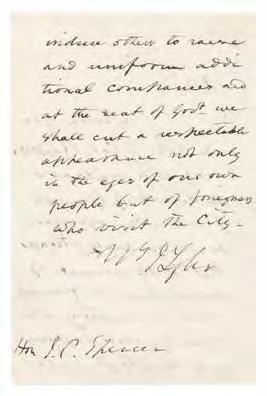 induce others to raise
and uniform addi
tional companies and
at the seat of Govt we
shall cut a respectable
appearance not only
in the eyes of our own
people but of foreigners
who visit the City-
J Tyler
Hon J. C. Spencer